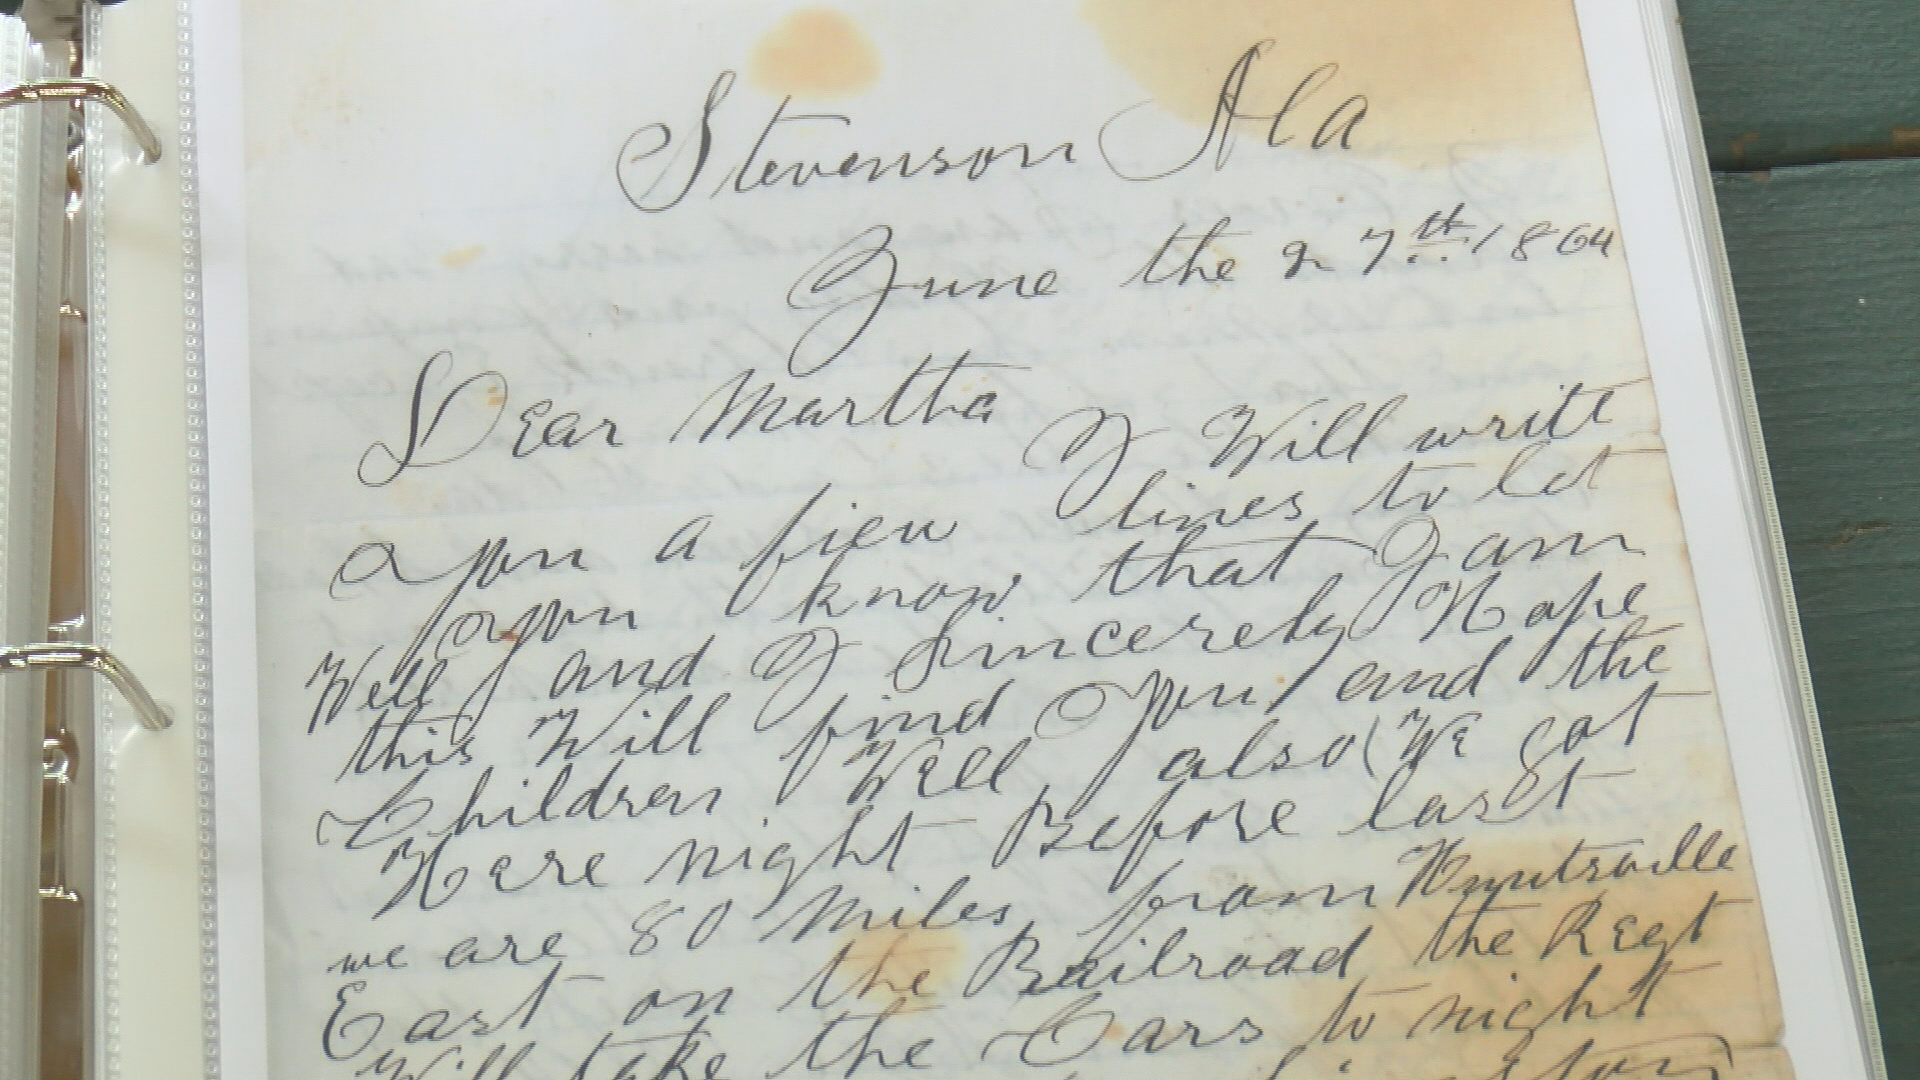 Stevenson Ala
June the 27th 1864
Dear Martha I Will write
you a fiew lines to let
you know that I am
Well and I Sincerely Hope
this Will find you and the
Children Well also (We got
Here night Before last
we are 80 Miles from Huntsville
East on the Railroad the Regt
Will take the Cars to night